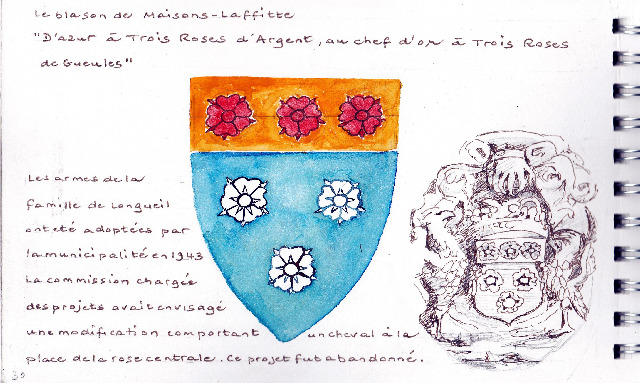 Le blason de Maisons-Laffitte
"D'azur à Trois Roses d'Argent, au chef d'or à Trois Roses
de Gueules"
Les armes de la
famille de Longueil
ont été adoptées par
la municipalité en 1943
La commission chargée
des projets avait envisagé
une modification comportant un cheval à la
place de la rose centrale. Ce projet fut abandonné.
30